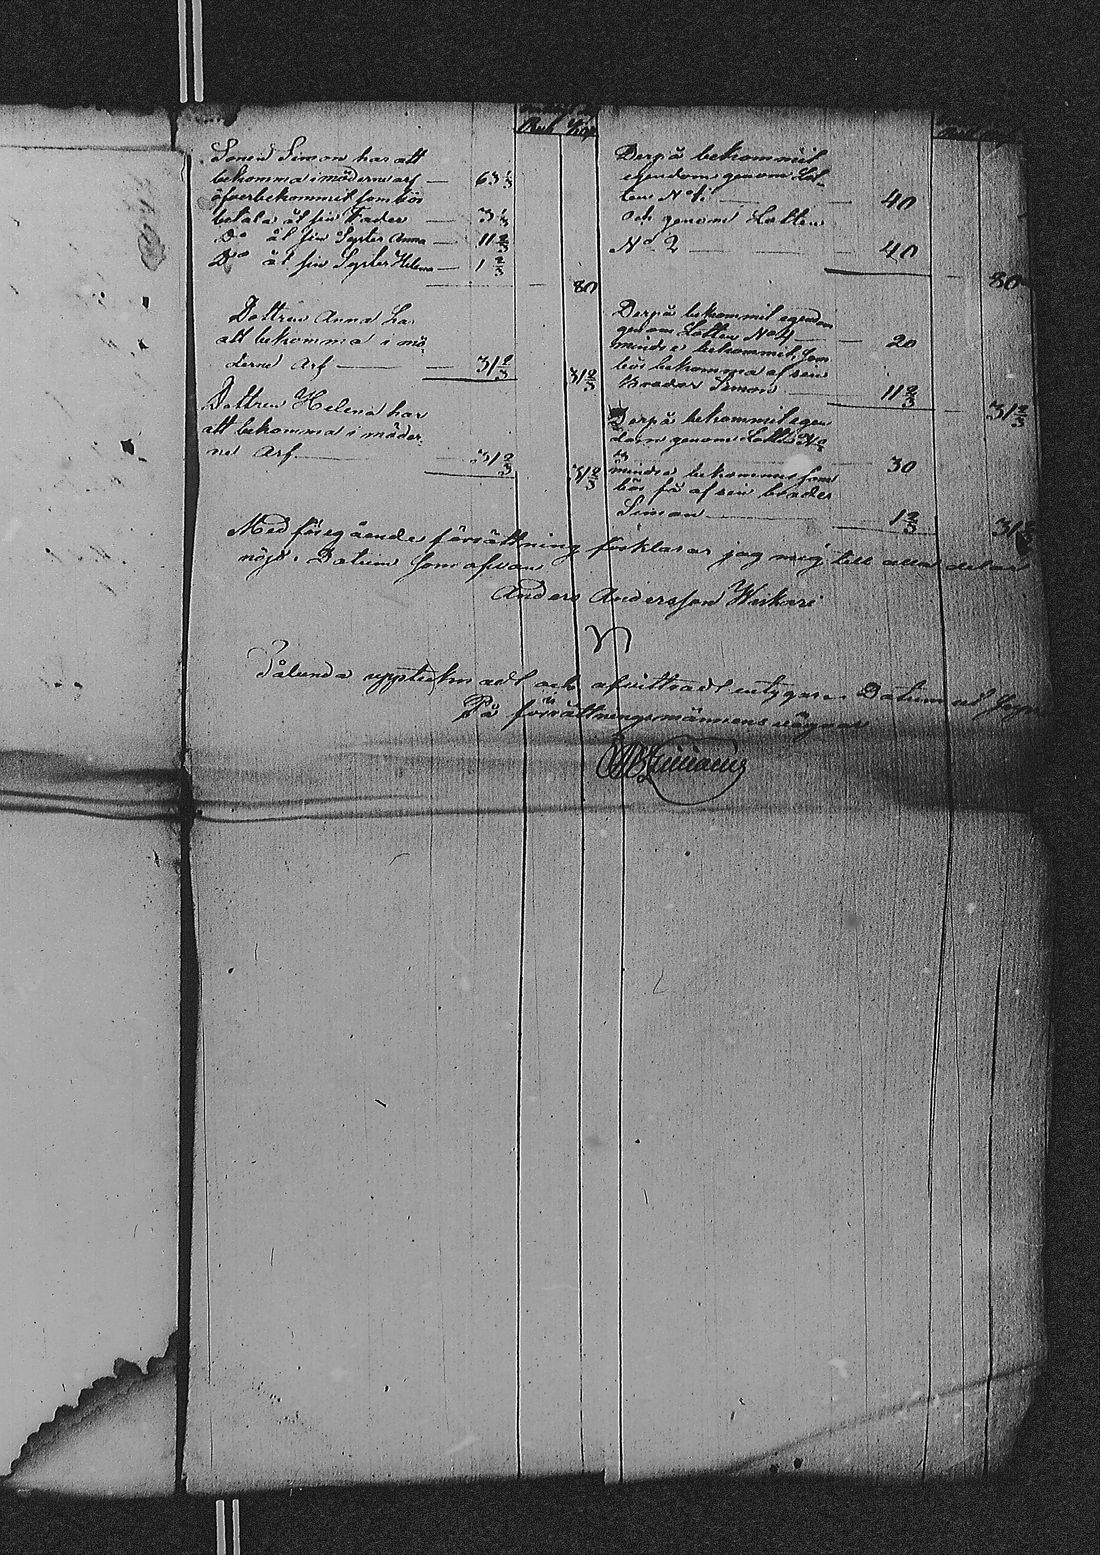 Rub Kop
Sonen Simon har att
bekomma i möderne arf — 63 1/3
öfverbekommit som bör
betala åt sin Fader — 3 1/3
Do åt sin Syster Anna — 11 2/3
Do åt sin Syster Helena — 1 2/3
80
Dottren Anna ha
att bekomma i mö-
derne Arf — 31 2/3
31 2/3
Dottren Helena har
att bekomma i möder-
ne Arf — 31 2/3
31 2/3
Derpå bekommit
egendom genom Lot-
ten No 1. — 40
och genom Lotten
No 2 — 40
80
Derpå bekommit egendom
genom Lotten No 4 — 20
mindre bekommit, som
bör bekomma af sin
Broder Simon — 11 2/3
31 2/3
Derpå bekommit egen
dom genom Lotten No
3 — 30
mindre bekommit som
bör få af sin broder
Simon — 1 2/3
31 2/3
Med föregående förrättning förklarar jag mig till alla delar
nöjd. Datum som ofvan
Anders Andersson Wiskari
Sålunda upptecknadt och afvittradt intygar. Datum ut
På förrättningsmännens vägnar